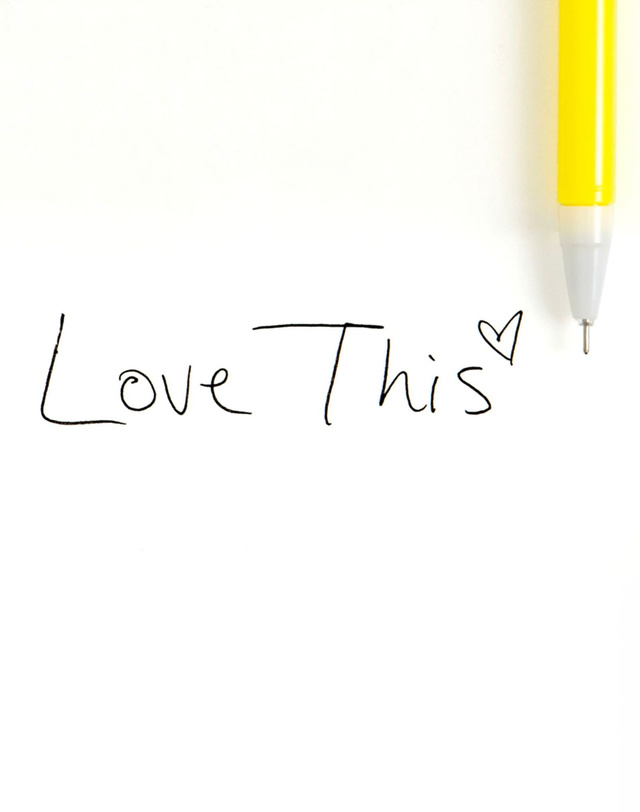 Love This♡